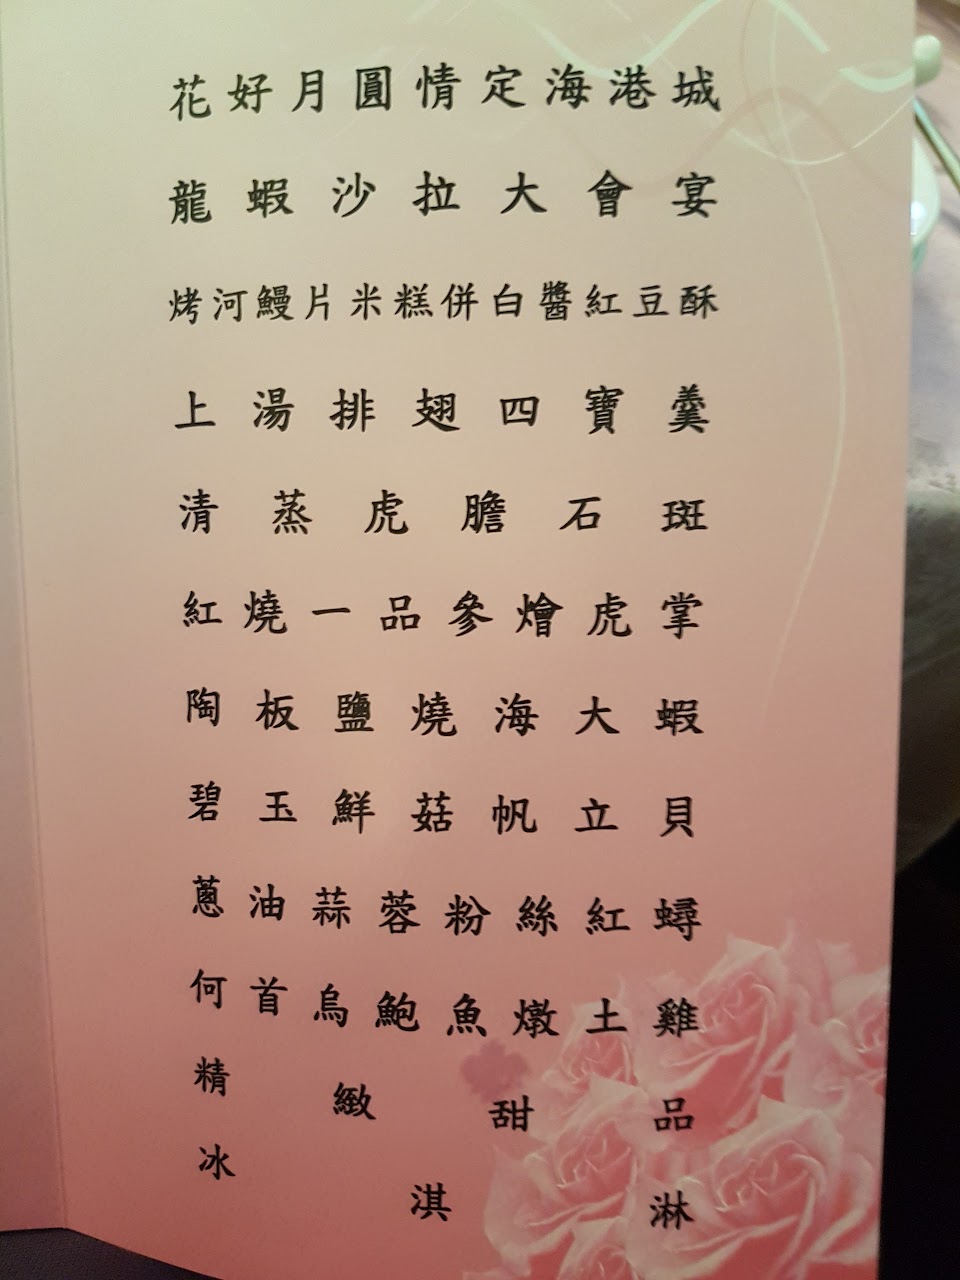 花好月圓情定海港城
龍蝦沙拉大會宴
烤河鰻片米糕併白醬紅豆酥
上湯排翅四寶羹
清蒸虎膽石斑
紅燒一品參燴虎掌
陶板鹽燒海大蝦
碧玉鮮菇帆立貝
蔥油蒜蓉粉絲紅蟳
何首烏鮑魚燉土雞
精緻甜品
冰淇淋